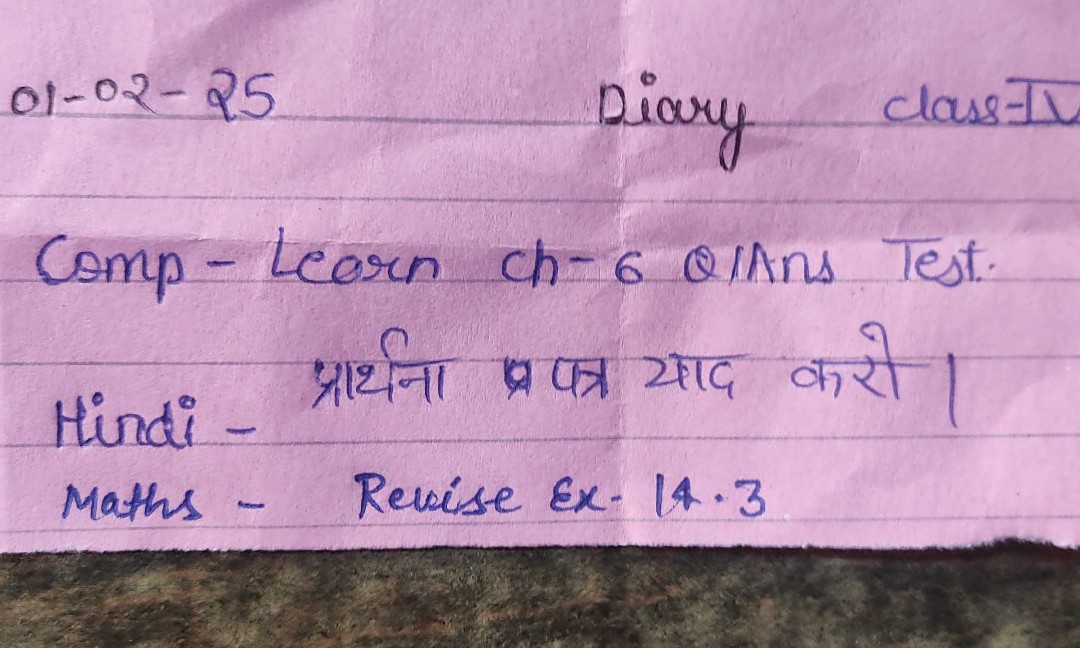 01-02-25 Diary class-IV
Comp - Learn ch-6 Q/Ans Test.
Hindi - प्रार्थना पत्र याद करो।
Maths - Revise Ex- 14.3